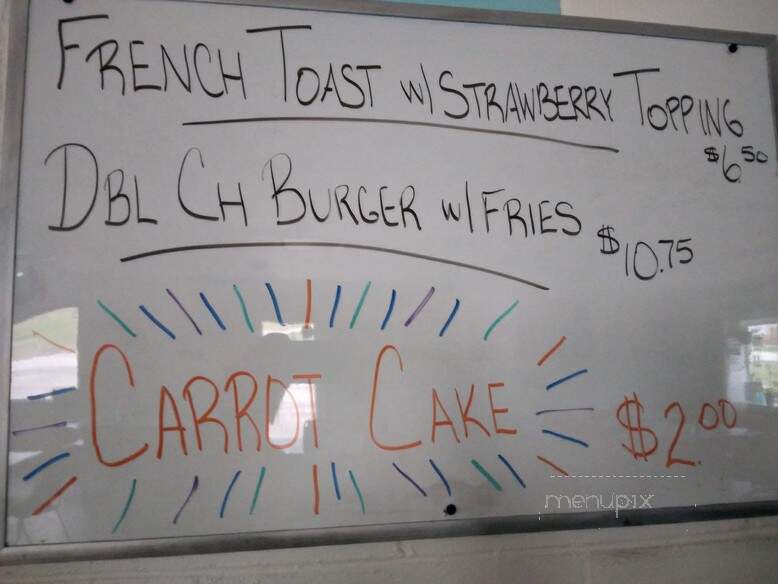 FRENCH TOAST W/ STRAWBERRY TOPPING
$6.50
DBL CH BURGER W/ FRIES $10.75
CARROT CAKE $2.00
menupix